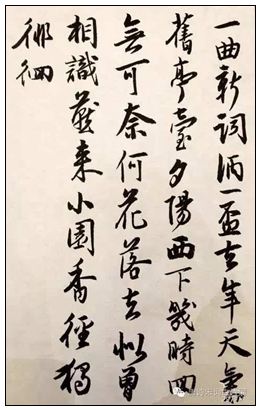 一曲新詞酒一盃去年天氣
舊亭臺夕陽西下幾時回
無可奈何花落去似曾
相識燕来小園香徑獨
徘徊